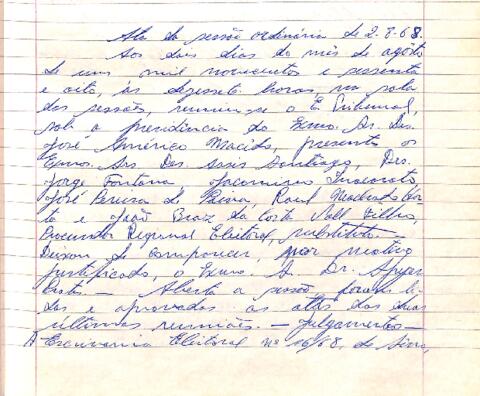 Ata da sessão ordinária de 2.8.68.
Aos dois dias do mês de agôsto
de um mil novecentos e sessenta
e oito, às dezessete horas, na sala
das sessões, reuniu-se o E. Tribunal,
sob a presidência do Exmo. Sr. Des.
José Américo Macêdo, presentes os
Exmos. Srs. Des. Assis Santiago, Des.
Jorge Fontana, Jacomino Inacarato,
José Pereira de Paiva, Raul Machado Hor
ta e João Braz da Costa Vall Filho,
Procurador Regional Eleitoral, substituto. -
Deixou de comparecer, por motivo
justificado, o Exmo. Sr. Dr.
Costa. - Aberta a sessão, foram li-
das e aprovadas as atas das duas
últimas reuniões. - Julgamentos -
A Escrivania Eleitoral nº 16/68, de